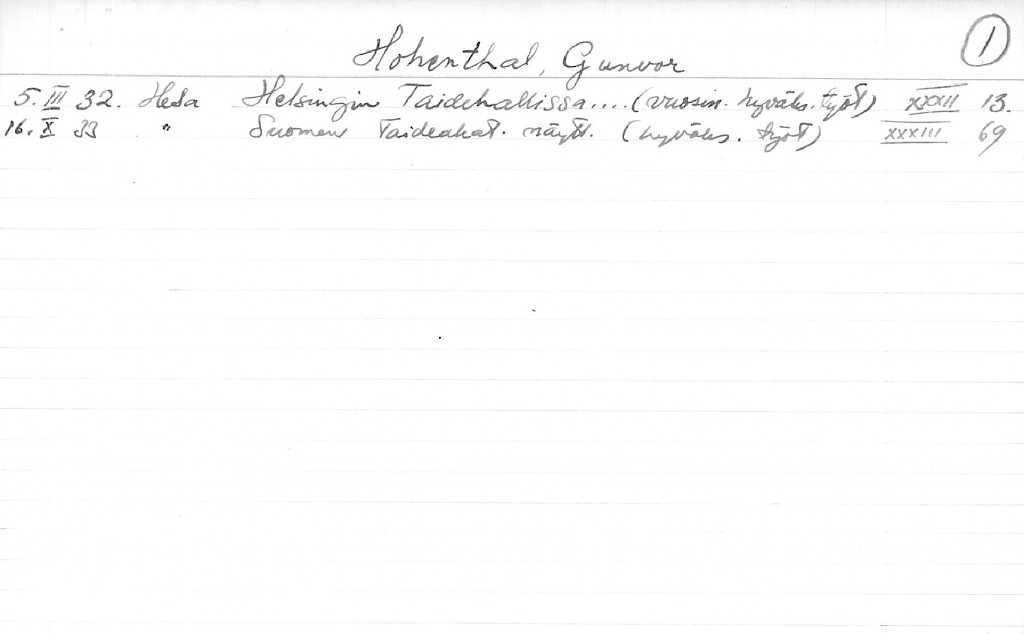 Hohenthal, Gunvor 1
5. III 32. HeSa Helsingin Taidehallissa.... (vuosin. hyväks. työt) XXXII 13.
16. X 33 " Suomen Taideakat. näytt. (hyväks. työt) XXXIII 69